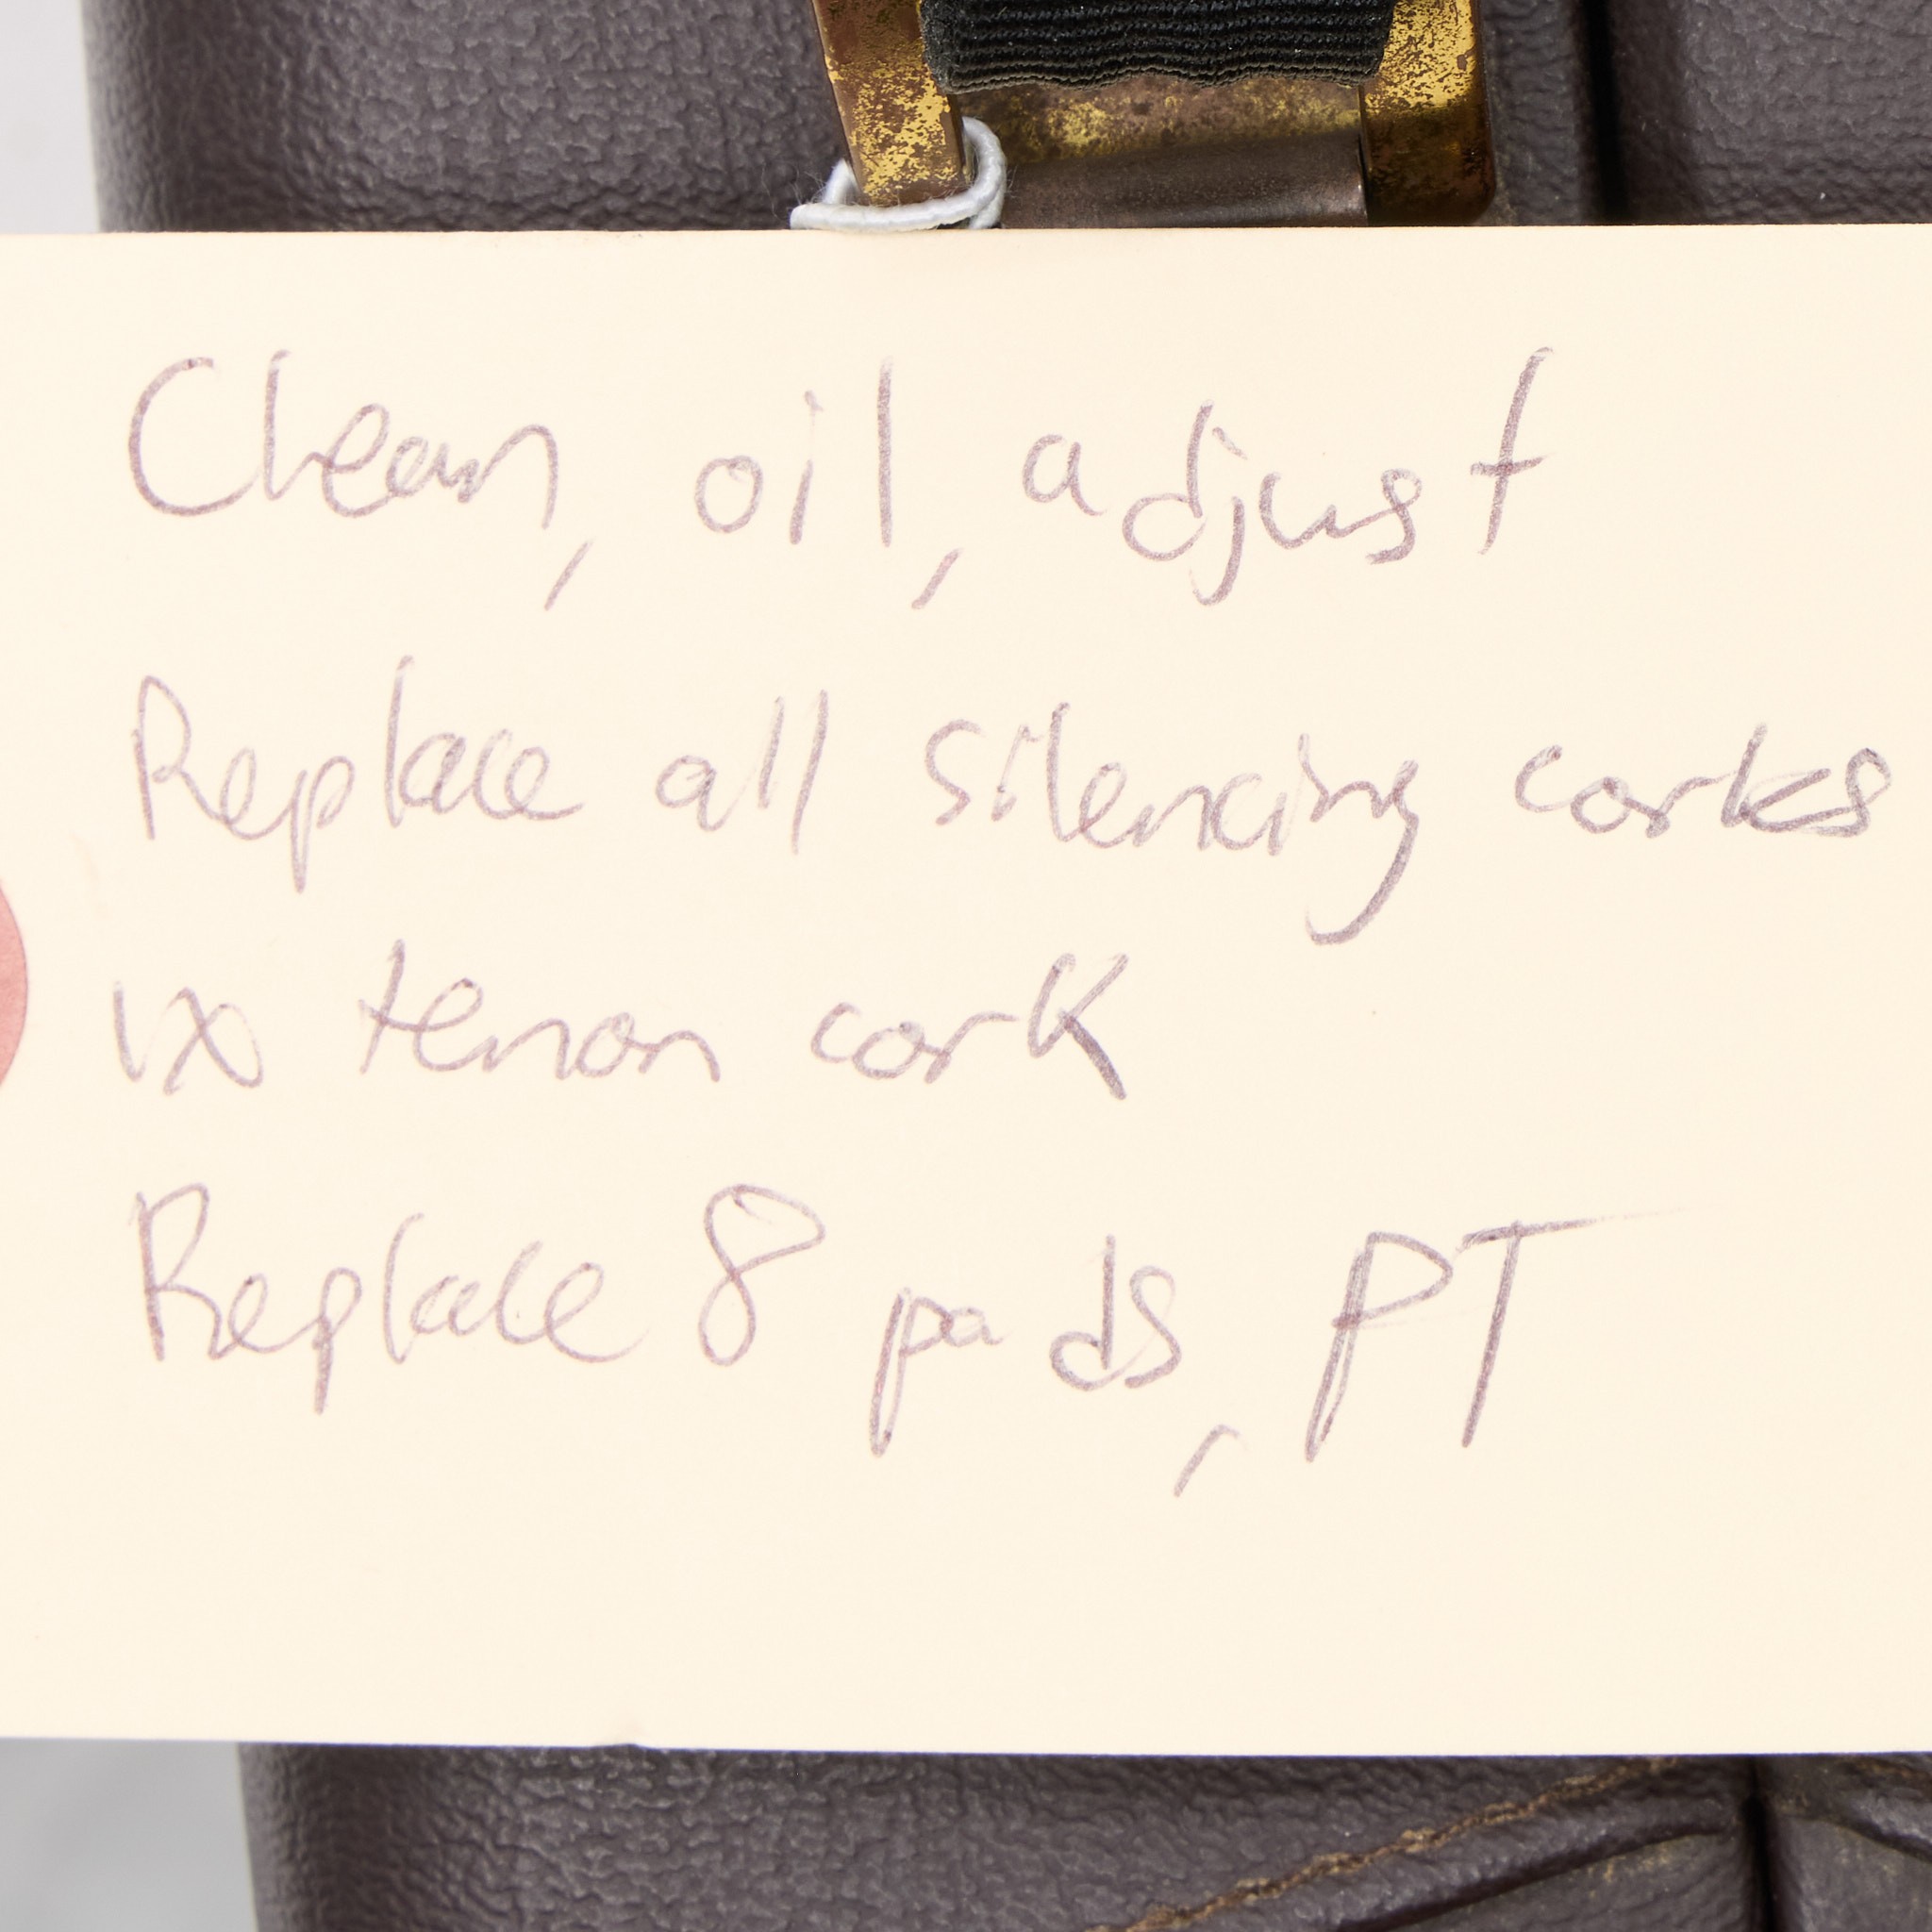 Clean, oil, adjust
Replace all silencing corks
1x tenon cork
Replace 8 pads, PT